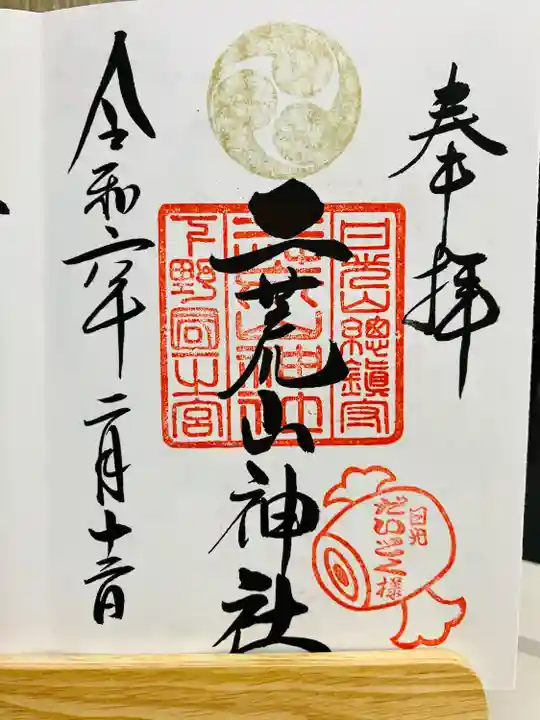 奉拝
日光山總鎮守
二荒山神社
二荒山神社
下野國一之宮
日光
だいこく様
令和六年二月十二日